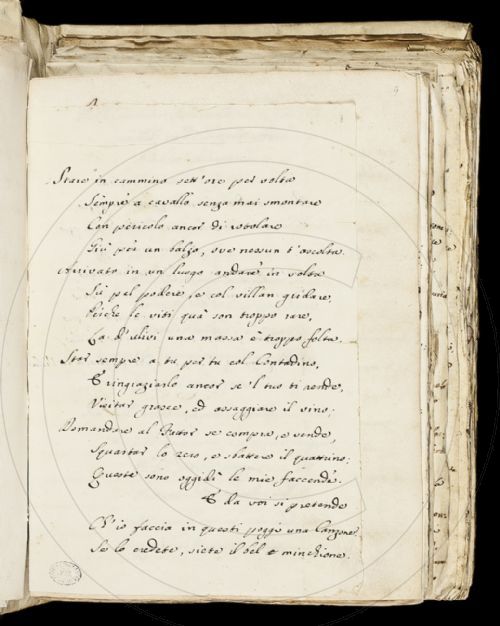 Stare in cammino sett'ore per volta
Sempre a cavallo senza mai smontare
Con pericolo ancor di rotolare
Giù per un balzo, ove nessun t'ascolta.
Arrivato in un luogo andare in volta
Sù pel podere se col villan gridare,
Perche le viti quà son troppo rare,
Là d'ulivi una massa è troppo folta.
Star sempre a tu per tu col Contadino,
E ringraziarlo ancor se 'l tuo ti rende,
Visitar grasce, ed assaggiare il vino;
Domandare al Fattor se compra, o vende,
Squartar lo zero, e sbattere il quattrino;
Queste sono oggidì le mie faccende.
E da voi si pretende
Ch'io faccia in questi poggi una Canzone?
Se lo credete, siete il bel minchione.